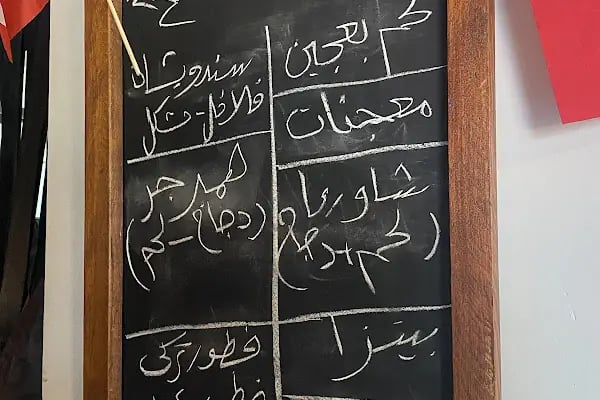 لحم بعجين
معجنات
شاورما
(لحم+دجاج)
بيتزا
سندويشات
فلافل-مشكل
همبرجر
(دجاج-لحم)
فطور تركي